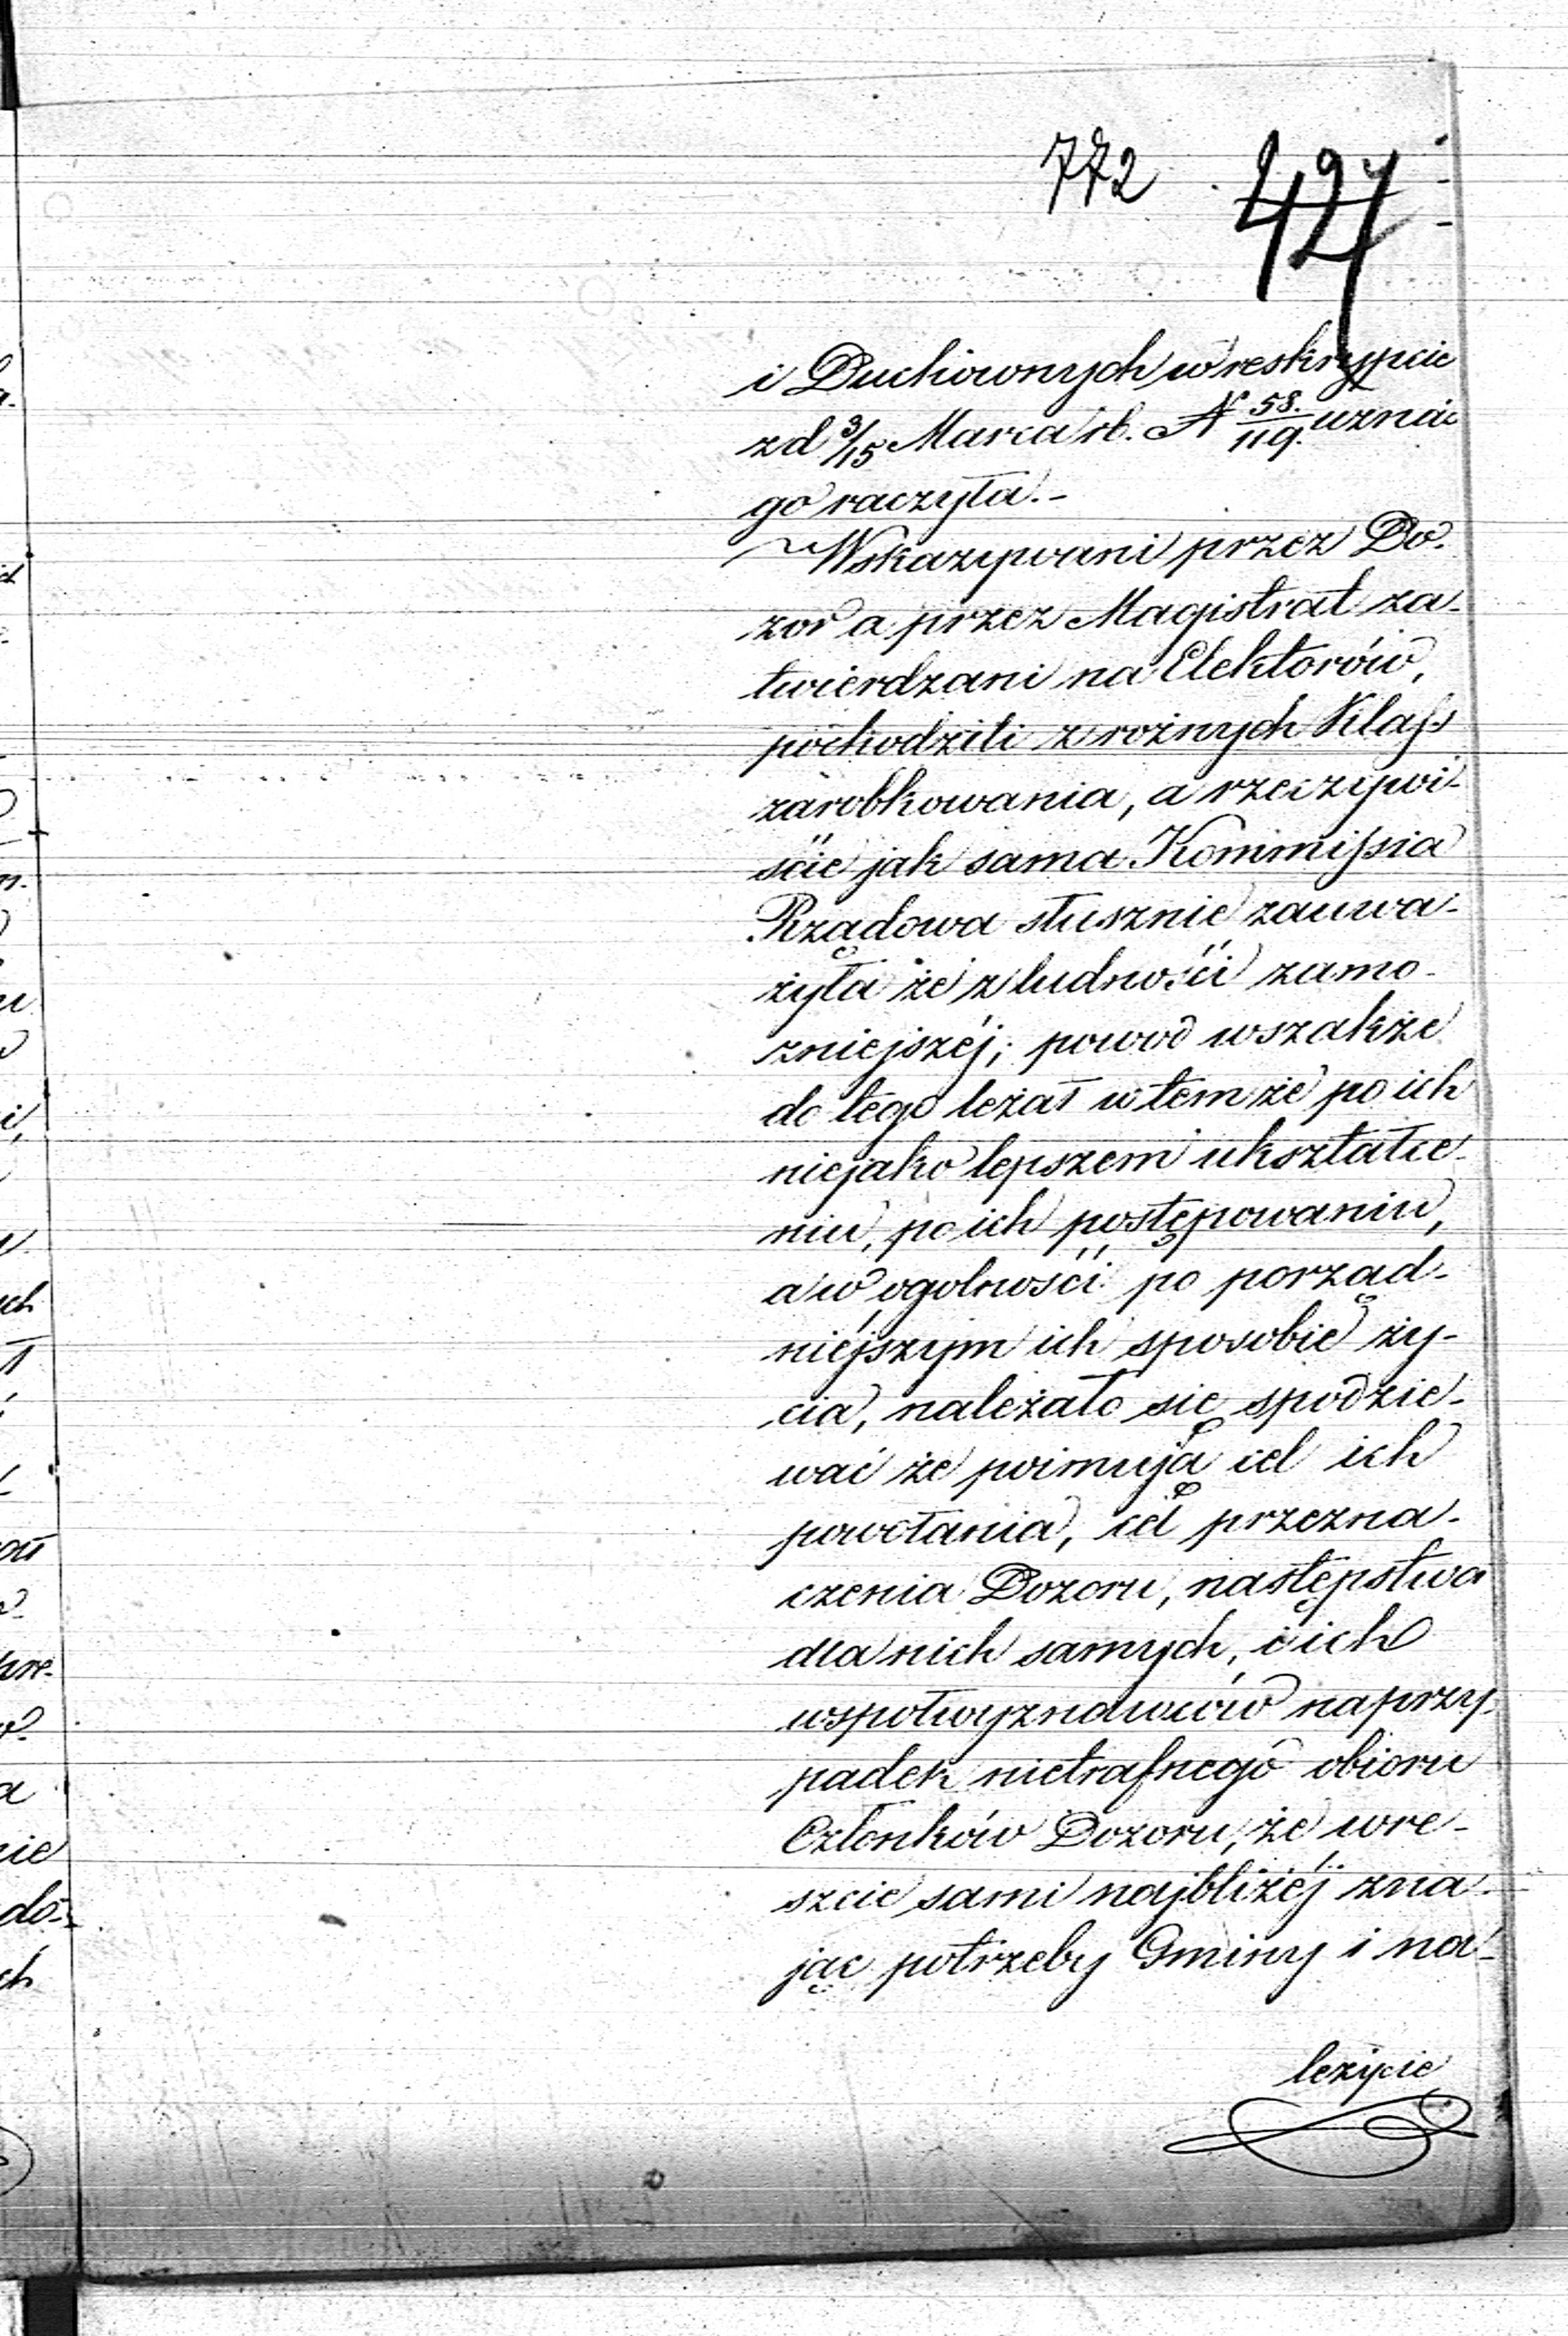 772 427
i Duchownych w reskrypcie
z d 3/15 Marca rb. N 58./119. uznać
go raczyła.-
Wskazywani przez Do-
zor a przez Magistrat za-
twierdzani na Elektorów,
pochodzili z rożnych Klass
zarobkowania, a rzeczywi-
ście jak sama Kommissia
Rządowa słusznie zauwa-
żyła że z ludności zamo-
zniejszéj; powod wszakże
do tego leżał w tem że po ich
niejako lepszem ukształce-
niu, po ich postępowaniu,
a w ogolności po porząd-
niéjszym ich sposobie ży-
cia, należało się spodzie-
wać że poimują cel ich
powołania, cel przezna-
czenia Dozoru, następstwa
dla nich samych, i ich
wspołwyznawców na przy-
padek nietrafnego obioru
Członków Dozoru, że wre-
szcie sami najbliżéj zna-
jąc potrzeby Gminy i na-
leżycie